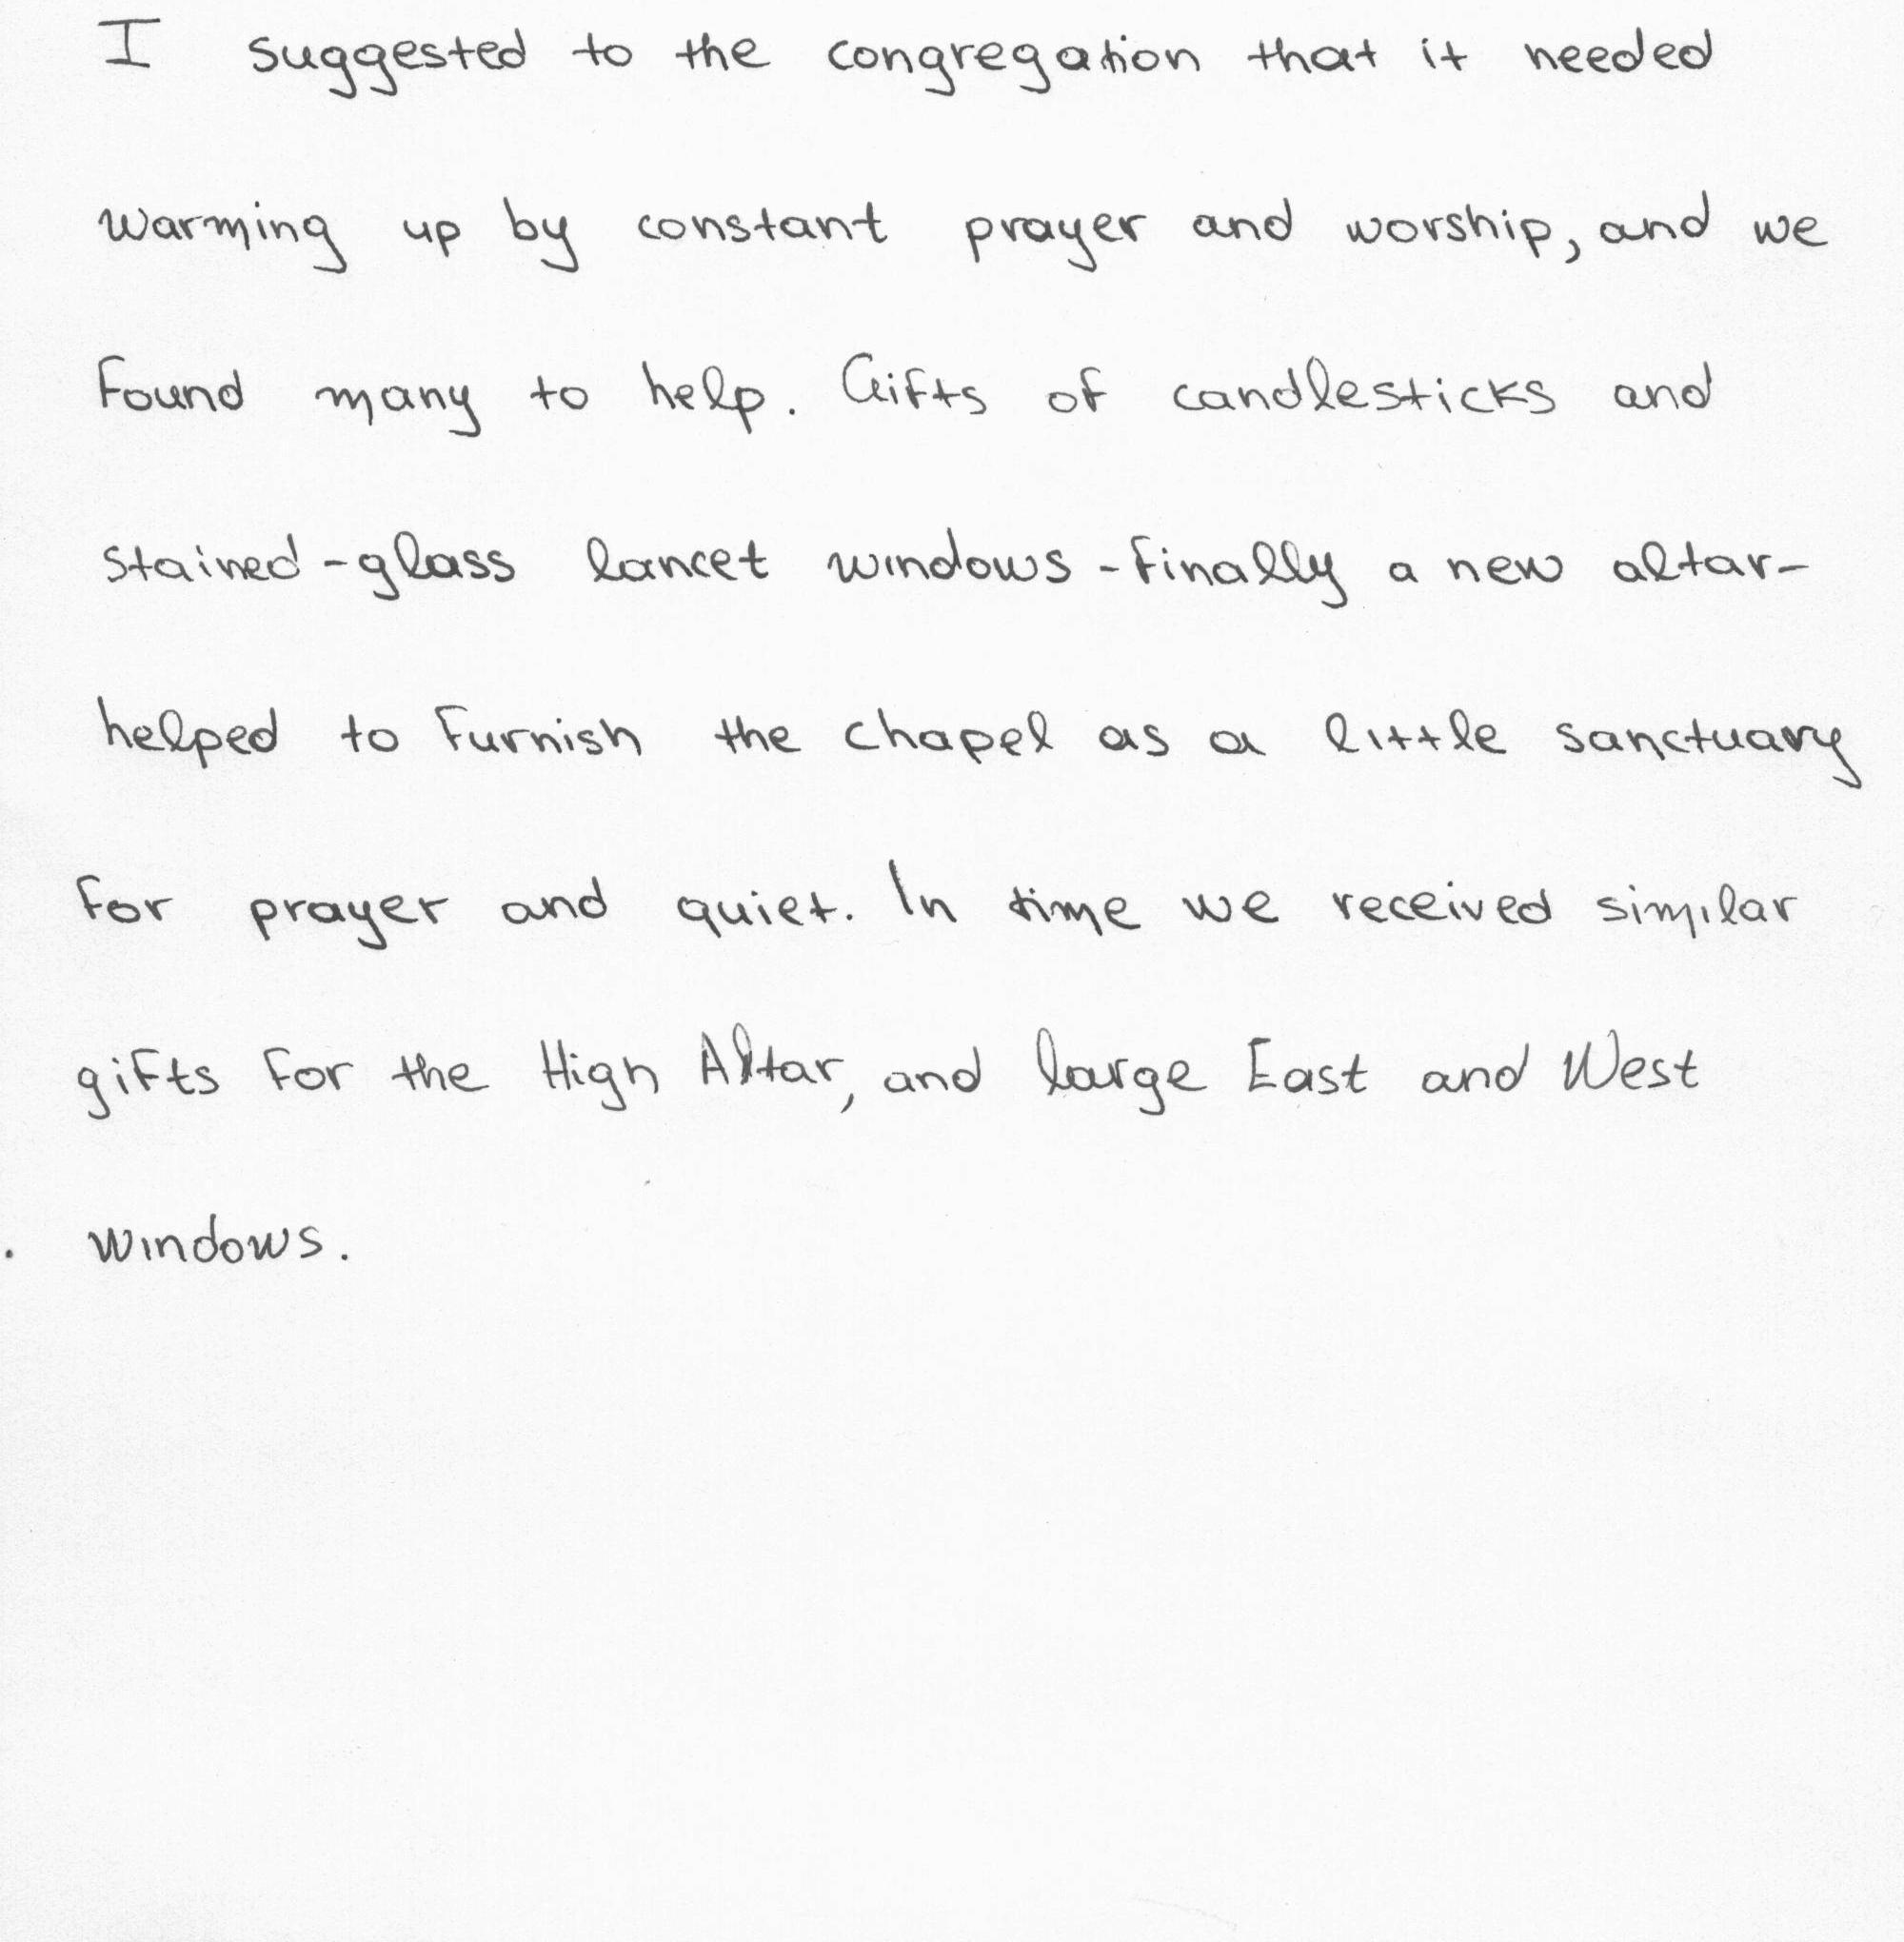 I suggested to the congregation that it needed
warming up by constant prayer and worship, and we
found many to help. Gifts of candlesticks and
stained-glass lancet windows - finally a new altar-
helped to furnish the chapel as a little sanctuary
for prayer and quiet. In time we received similar
gifts for the High Altar, and large East and West
windows.